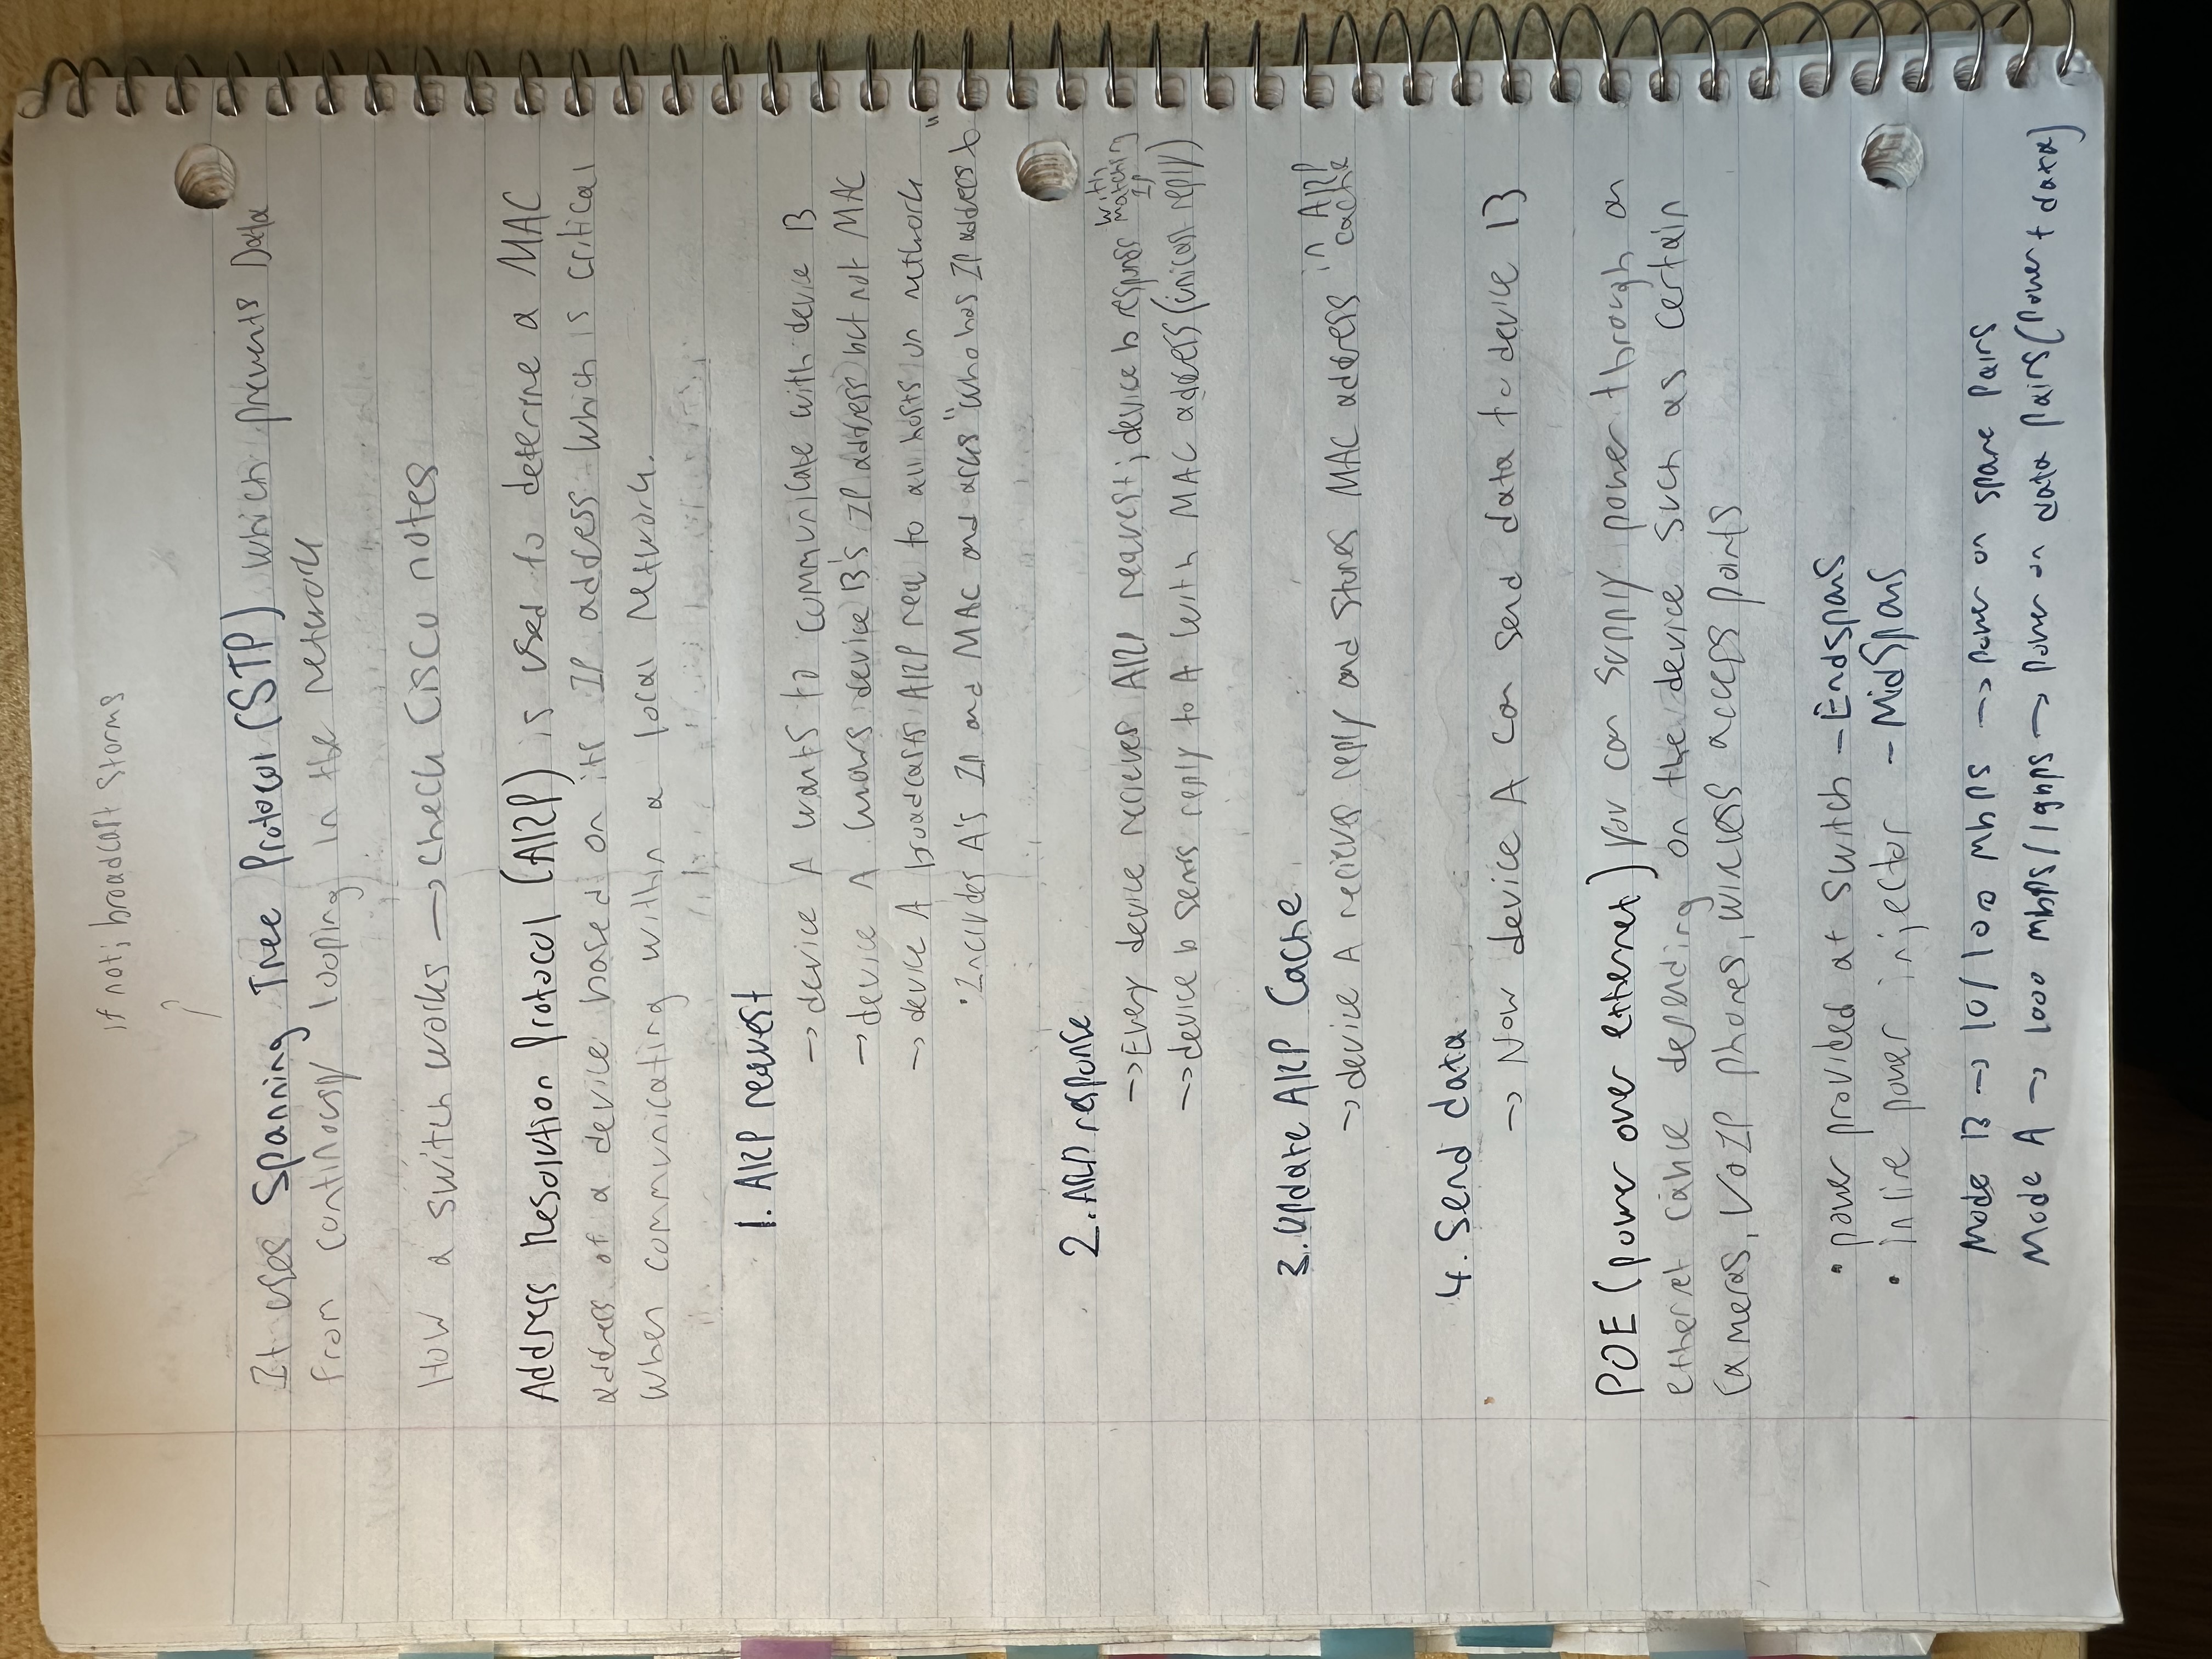 if not; broadcast storms
It uses Spanning Tree Protocol (STP) which prevents Data
from continously looping in the network
How a switch works → check Cisco notes
Address Resolution Protocol (ARP) is used to deterine a MAC
address of a device based on its IP address which is critical
when communicating within a local network.
1. ARP request
→ device A wants to communicate with device B
→ device A knows device B's IP address but not MAC
→ device A broadcasts ARP req to all hosts on network
• Includes A's IP and MAC and asks "who has IP address b"
2. ARP response
→ Every device recieves ARP request; device b responds with matching IP
→ device b sends reply to A with MAC address (unicast reply)
3. Update ARP Cache
→ device A recieves reply and stores MAC address in ARP cache
4. Send data
→ Now device A can send data to device B
POE (power over ethernet) you can supply power through an
ethernet cable depending on the device such as certain
cameras, VoIP phones, wireless access points
• power provided at switch - Endspans
• inline power injector - MidSpans
Mode B → 10/100 Mbps → power on spare pairs
Mode A → 1000 mbps/1gbps → Power on data pairs (power + data)